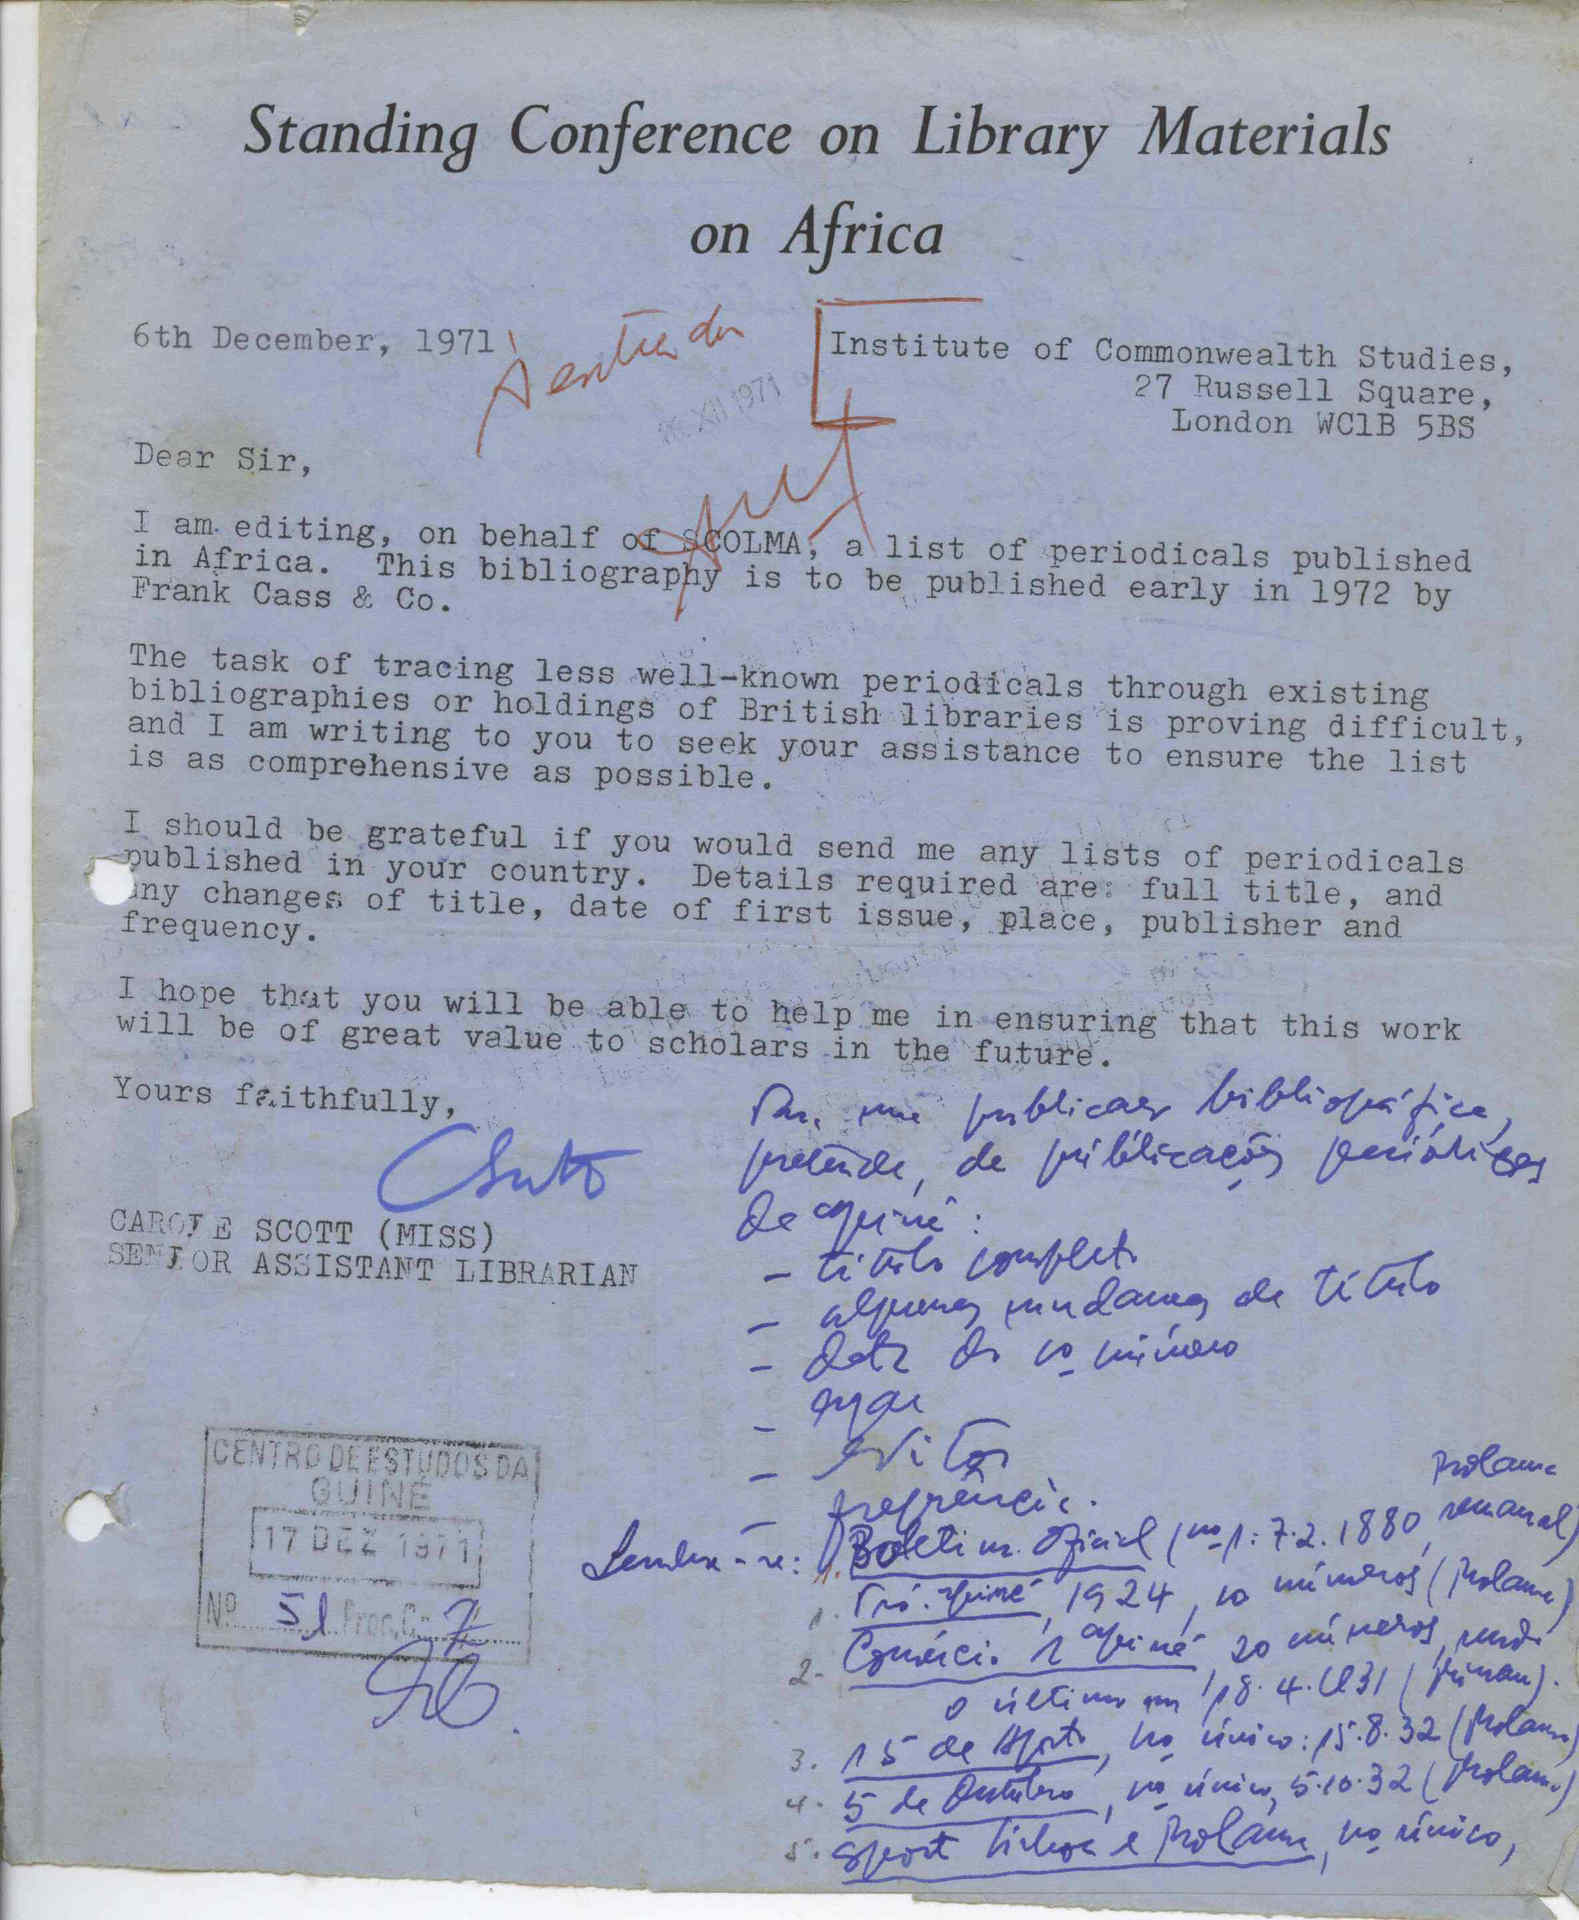 Standing Conference on Library Materials
on Africa
6th December, 1971
Institute of Commonwealth Studies,
27 Russell Square,
London WC1B 5BS
XII 1971
Dear Sir,
I am editing, on behalf of SCOLMA, a list of periodicals published
in Africa. This bibliography is to be published early in 1972 by
Frank Cass & Co.
The task of tracing less well-known periodicals through existing
bibliographies or holdings of British libraries is proving difficult,
and I am writing to you to seek your assistance to ensure the list
is as comprehensive as possible.
I should be grateful if you would send me any lists of periodicals
published in your country. Details required are: full title, and
any changes of title, date of first issue, place, publisher and
frequency.
I hope that you will be able to help me in ensuring that this work
will be of great value to scholars in the future.
Yours faithfully,
CScott
CAROLE SCOTT (MISS)
SENIOR ASSISTANT LIBRARIAN
bibliográfica,
pretende, de publicações periódicas
da Guiné:
- título completo
- algumas mudanças de título
- data do 1º número
- editor
- frequência.
CENTRO DE ESTUDOS DA
GUINÉ
17 DEZ 1971
Nº 51 Proc. C-7
Bolama
1. Boletim Oficial (nº 1: 7.2.1880, semanal)
1. Pró-Guiné, 1924, 10 números (Bolama)
2. Comércio da Guiné 20 números, sendo
o último em 18.4.1931 (Bissau).
3. 15 de Agosto, nº único: 15.8.32 (Bolama)
4. 5 de Outubro, nº único, 5.10.32 (Bolama)
5. Sport Lisboa e Bolama, nº único,